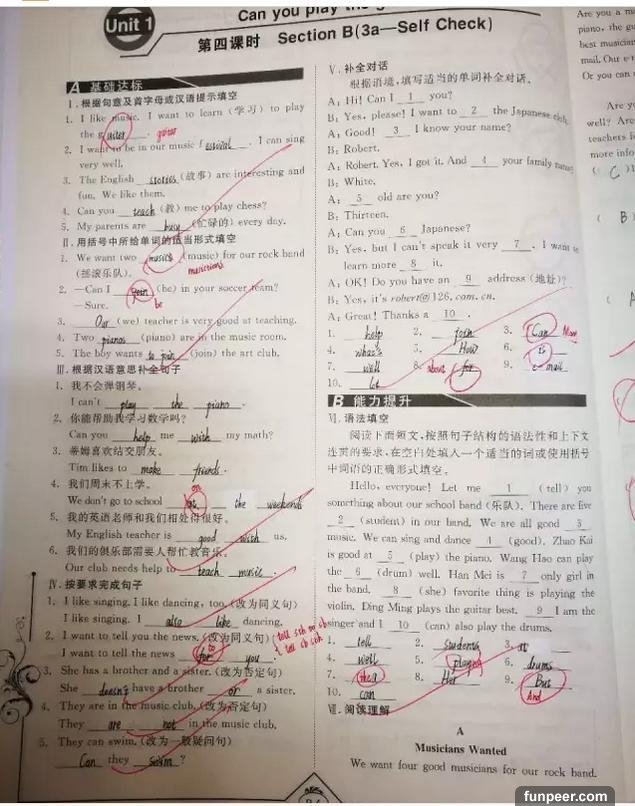 Unit 1
Can you play the g
第四课时 Section B(3a—Self Check)
A 基础达标
Ⅰ.根据句意及首字母或汉语提示填空
1. I like music. I want to learn (学习) to play
the guitar. guitar
2. I want to be in our music festival. I can sing
very well.
3. The English stories (故事) are interesting and
fun. We like them.
4. Can you teach (教) me to play chess?
5. My parents are busy (忙碌的) every day.
Ⅱ.用括号中所给单词的适当形式填空
1. We want two musics (music) for our rock band
(摇滚乐队). musicians
2. —Can I join (be) in your soccer team?
—Sure. be
3. Our (we) teacher is very good at teaching.
4. Two pianos (piano) are in the music room.
5. The boy wants to join (join) the art club.
Ⅲ.根据汉语意思补全句子
1. 我不会弹钢琴。
I can't play the piano.
2. 你能帮助我学习数学吗?
Can you help me with my math?
3. 蒂姆喜欢结交朋友。
Tim likes to make friends.
4. 我们周末不上学。
on
We don't go to school the weekends
5. 我的英语老师和我们相处得很好。
My English teacher is good with us.
6. 我们的俱乐部需要人帮忙教音乐。
Our club needs help to teach music.
Ⅳ.按要求完成句子
1. I like singing. I like dancing, too. (改为同义句)
I like singing. I also like dancing.
2. I want to tell you the news. (改为同义句) tell sth to sb
I want to tell the news for you. tell sb sth
to
3. She has a brother and a sister. (改为否定句)
She doesn't have a brother or a sister.
4. They are in the music club. (改为否定句)
They are not in the music club.
5. They can swim. (改为一般疑问句)
Can they swim?
Ⅴ.补全对话
根据语境,填写适当的单词补全对话。
A: Hi! Can I 1 you?
B: Yes, please! I want to 2 the Japanese club.
A: Good! 3 I know your name?
B: Robert.
A: Robert. Yes, I got it. And 4 your family name?
B: White.
A: 5 old are you?
B: Thirteen.
A: Can you 6 Japanese?
B: Yes, but I can't speak it very 7. I want to
learn more 8 it.
A: OK! Do you have an 9 address (地址)?
B: Yes, it's robert@126.com.cn.
A: Great! Thanks a 10.
1. help 2. join 3. Can May
4. what's 5. How 6. is
7. well 8. about for 9. e-mail
10. lot
B 能力提升
Ⅵ.语法填空
阅读下面短文,按照句子结构的语法性和上下文
连贯的要求,在空白处填入一个适当的词或使用括号
中词语的正确形式填空。
Hello, everyone! Let me 1 (tell) you
something about our school band (乐队). There are five
2 (student) in our band. We are all good 3
music. We can sing and dance 4 (good). Zhao Kai
is good at 5 (play) the piano. Wang Hao can play
the 6 (drum) well. Han Mei is 7 only girl in
the band. 8 (she) favorite thing is playing the
violin. Ding Ming plays the guitar best. 9 I am the
singer and I 10 (can) also play the drums.
1. tell 2. students 3. at
4. well 5. playing 6. drums
7. the 8. Her 9. But
10. can And
Ⅶ.阅读理解
A
Musicians Wanted
We want four good musicians for our rock band.
Are you a m
piano, the gu
best musician
mail. Our e-
Or you can
Are y
well? Are
teachers
more info
( C )1
( B
funpeer.com